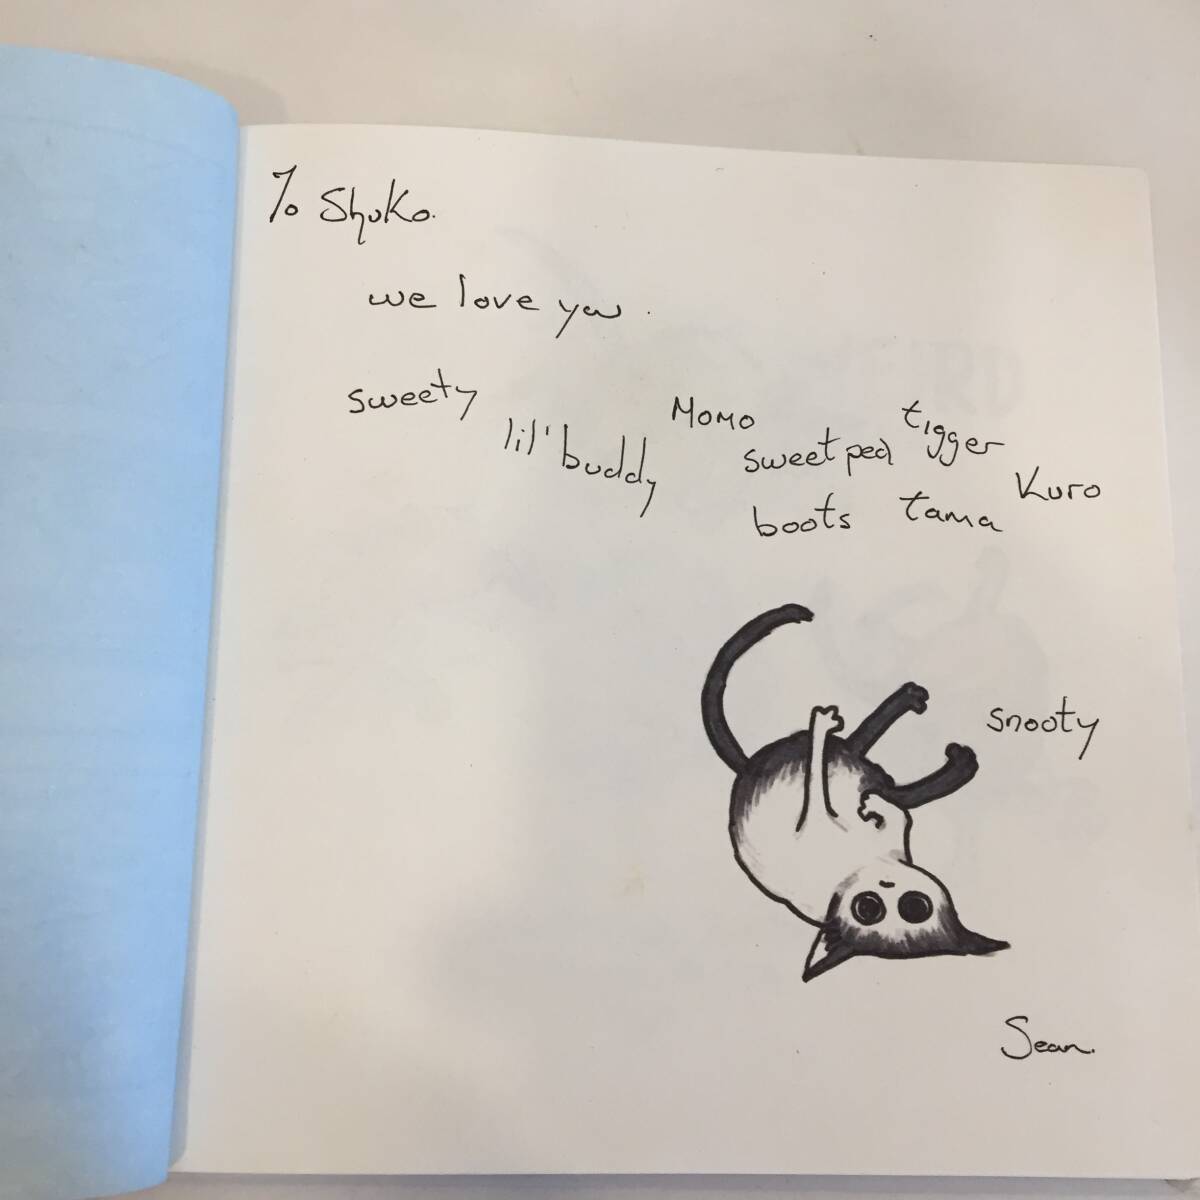 To Shuko.
we love you.
sweety
lil' buddy
Momo
sweet pea
tigger
Kuro
boots
tama
snooty
Sean.